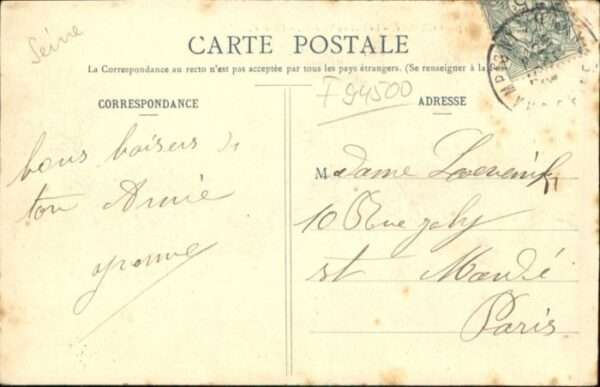 Seine
CARTE POSTALE
La Correspondance au recto n'est pas acceptée par tous les pays étrangers. (Se renseigner à la
F 94500
CORRESPONDANCE
bons baisers de
ton Amie
yvonne
ADRESSE
Madame
10 Rue
st Mandé
Paris